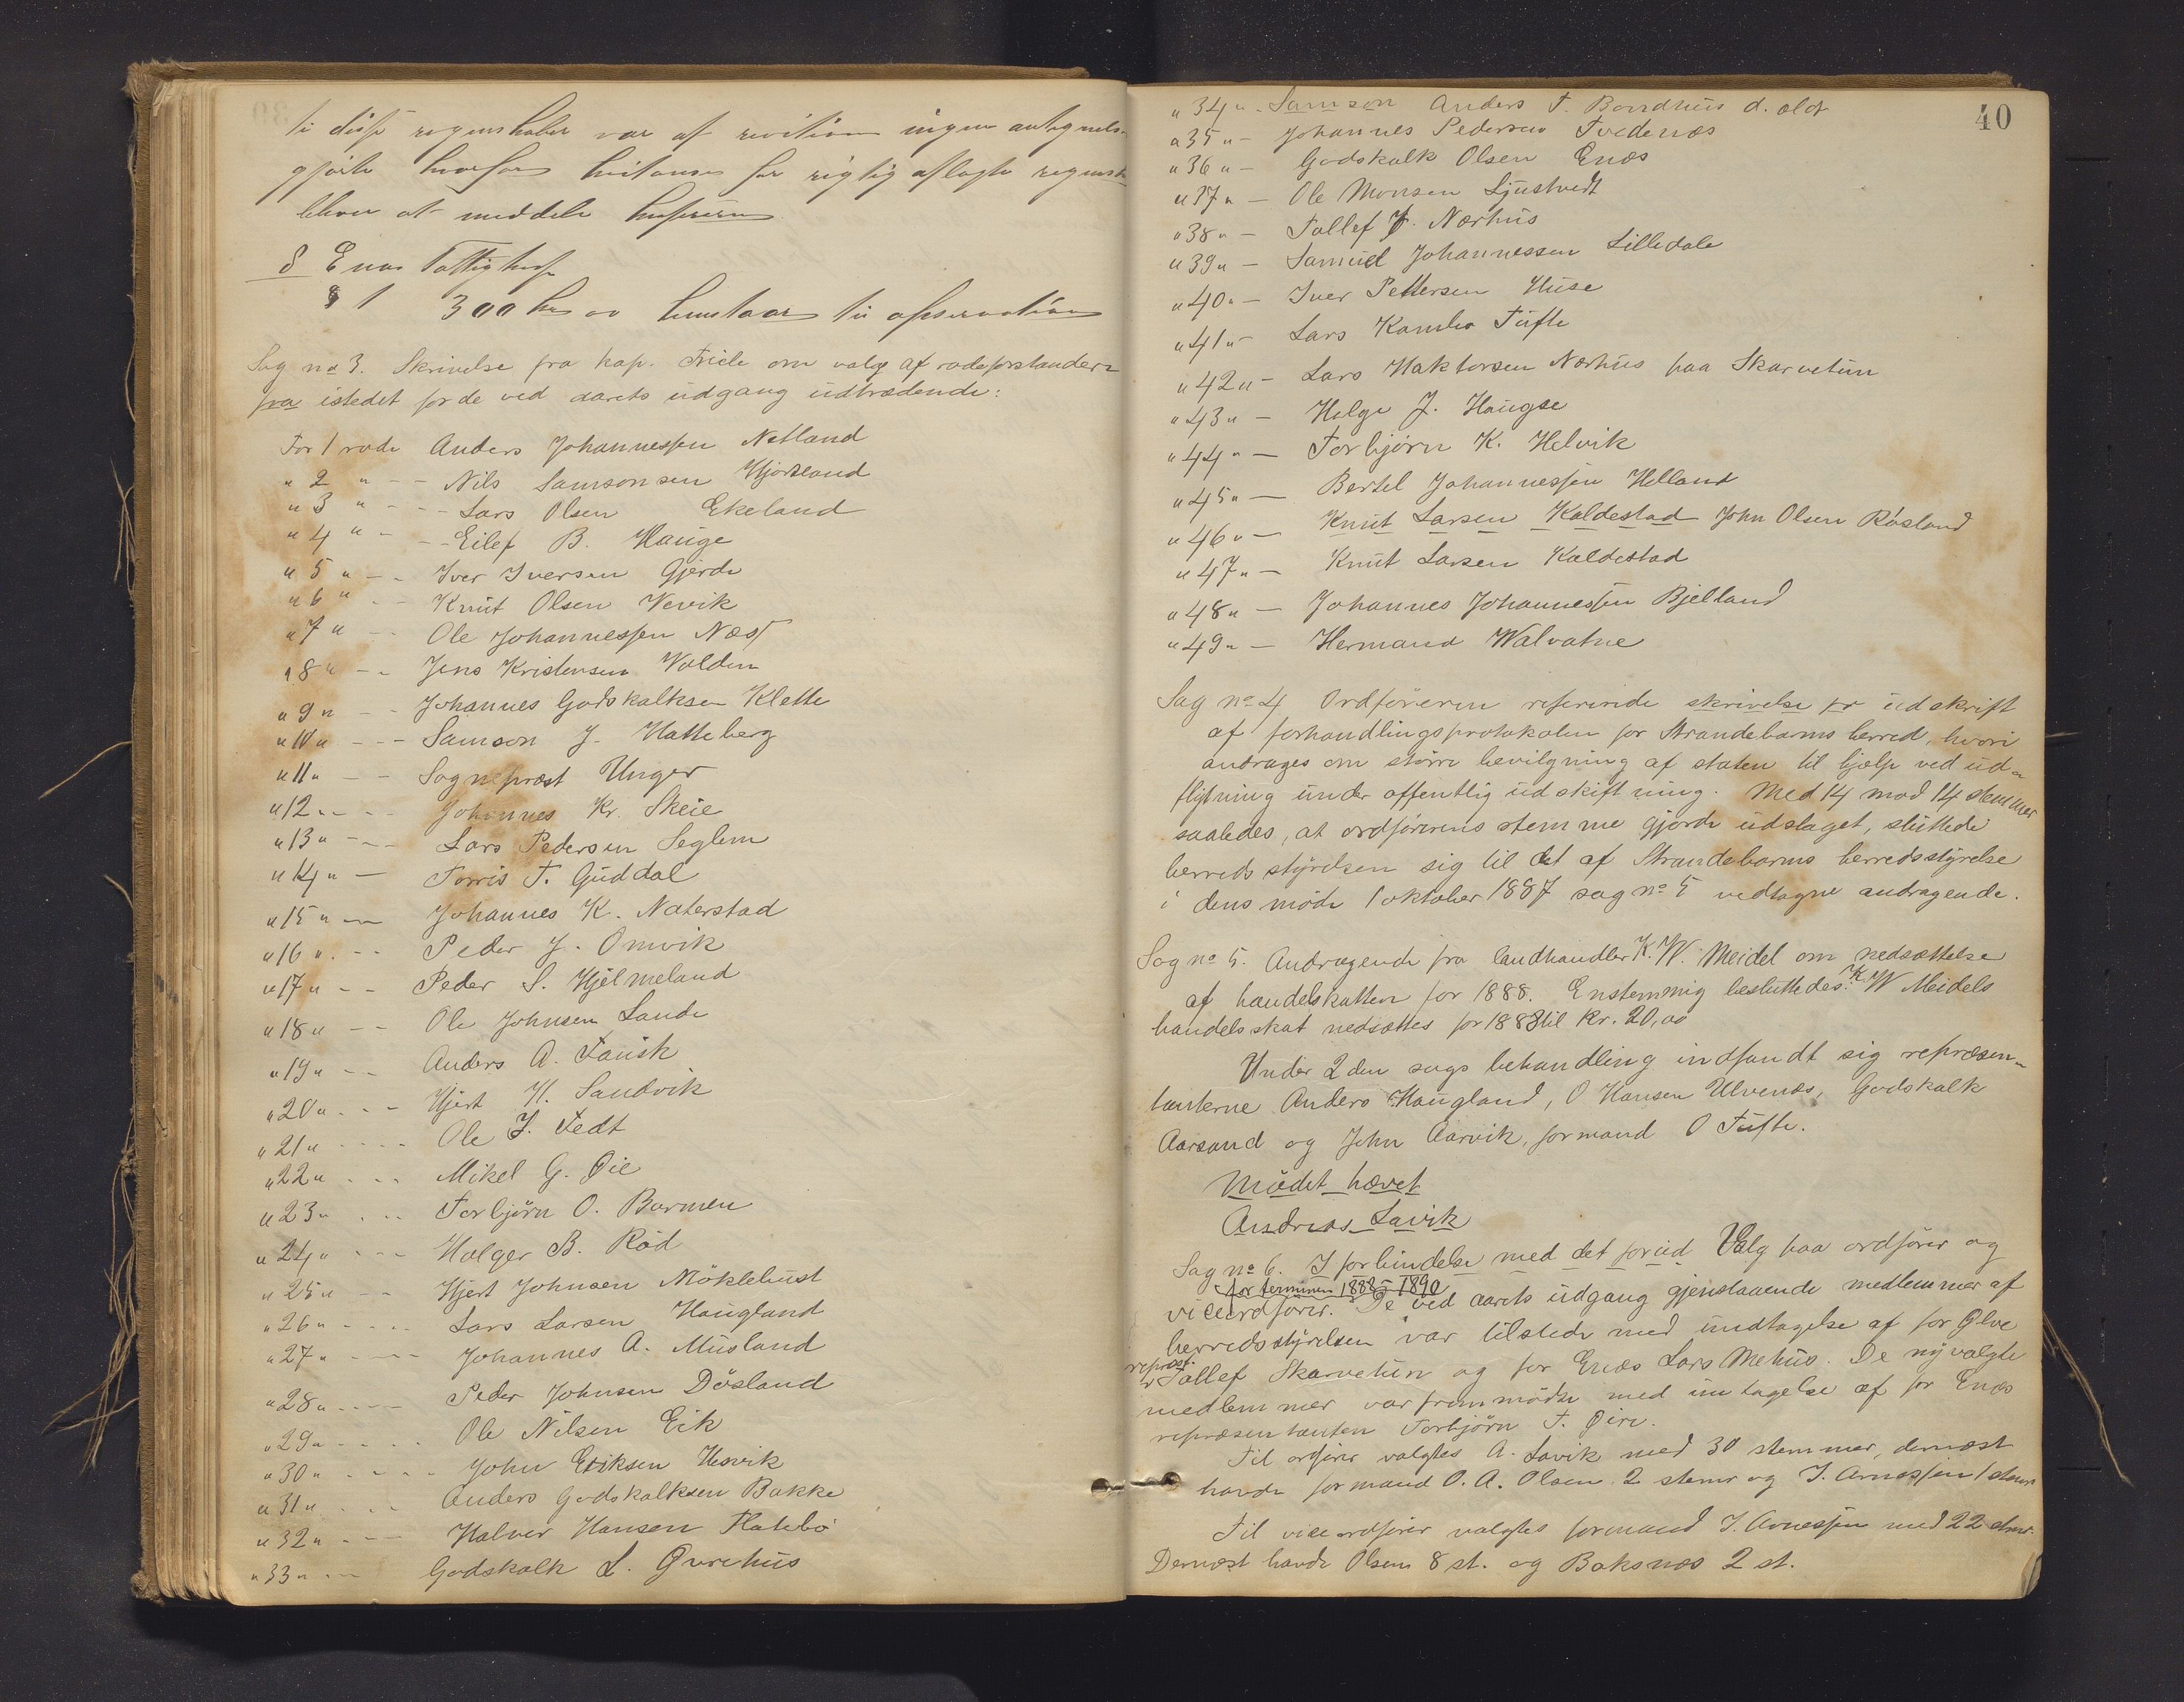 til disse regnskaber var af revisionen ingen antegnelse
gjorte hvorfor kvitanse for rigtig aflagte regnsk
bliver at meddele kassereren
8 Enæs Fattigkasse
§ 1 300 kr
Sag no 3. Skrivelse fra kap. Friele om valg af rodeforstandere
fra istedet for de ved aarets udgang udtrædende:
For 1 rode Anders Johannessen Netland
" 2 " - - Nils Samsonsen Hjortland
" 3 " - - - Lars Olsen Ekeland
" 4 " - - Eilef B. Hauge
" 5 " - - Iver Iversen Gjerde
" 6 " - - Knut Olsen Vevik
" 7 " - - Ole Johannessen Næss
" 8 " - - Jens Kristensen Volden
" 9 " - - Johannes Godskalksen Klette
" 10 " - - - Samson J. Hatteberg
" 11 " - - Sogneprest Unger
" 12 " - - Johannes Kr. Skeie
" 13 " - - - Lars Pedersen Seglem
" 14 " - Torris T. Guddal
" 15 " - - Johannes K. Naterstad
" 16 " - - Peder J. Omvik
" 17 " - - Peder S. Hjelmeland
" 18 " - - Ole Johnsen Sande
" 19 " - - Anders A. Tausk
" 20 " - - - Hjert H. Sandvik
" 21 " - - - - Ole J. Tedt
" 22 " - - - Mikel G. Øie
" 23 " - - - Torbjørn O. Barmen
" 24 " - - - Holger B. Rød
" 25 " - - Hjert Johnsen Möklebust
" 26 " - - - - Lars Larsen Haugland
" 27 " - - - Johannes A. Musland
" 28 " - - - - Peder Johnsen Døsland
" 29 " - - - - Ole Nilsen Eik
" 30 " - - - - John Eriksen Hesvik
" 31 " - - - Anders Godskalksen Bakke
" 32 " - - - Halvor Hansen Flatebø
" 33 " - - Godskalk L. Øvrehus
40
" 34 " - Samson Anders T. Bondhus d. eldr
" 35 " - Johannes Pedersen Tvedenæs
" 36 " - Godskalk Olsen Enæs
" 37 " - Ole Monsen Ljustvedt
" 38 " - Tollef J. Nærhus
" 39 " - Samuel Johannessen Lilledale
" 40 " - Iver Pettersen Huse
" 41 " - Lars Kambo Tufte
" 42 " - Lars Haktorsen Nærhus paa Skarvetun
" 43 " - Helge J. Haugse
" 44 " - Torbjørn K. Helvik
" 45 " - Bertel Johannessen Helland
" 46 " - Knut Larsen Kaldestad John Olsen Røsland
" 47 " - Knut Larsen Kaldestad
" 48 " - Johannes Johannessen Bjelland
" 49 " - Hermand Walvatne
Sag no 4 Ordføreren refererede skrivelse fr udskrift
af forhandlingsprotokolen for Strandebarms herred, hvori
andrages om større bevilgning af staten til hjælp ved ud-
flytning under offentlig udskiftning. Med 14 mod 14 stemmer
saaledes, at ordførerens stemme gjorde udslaget, sluttede
herredsstyrelsen sig til det af Strandebarms herredsstyrelse
i dens møde 1 oktober 1887 sag no 5 vedtagne andragende.
Sag no 5. Andragende fra landhandler K. W. Meidel om nedsættelse
af handelskatten for 1888. Enstemmig besluttedes: K W Meidels
handelsskat nedsættes for 1888 til Kr. 20,00
Under 2den sags behandling indfandt sig repræsen-
tanterne Anders Haugland, O Hansen Ulvenæs, Godskalk
Aarsand og John Aarvik, formand O Tufte.
Mødet hævet
Andreas Lavik
Sag no 6. I forbindelse med det forud Valg paa ordfører og
for terminen 1888-1890
viceordfører. De ved aarets udgang gjenstaaende medlemmer af
herredsstyrelsen var tilstede med undtagelse af for Ølve
repræs. Tollef Skarvetun og for Enæs Lars Mehus. De nyvalgte
medlemmer var fremmødte med undtagelse af for Enæs
repræsentanten Torbjørn T. Øire.
Til ordfører valgtes A. Lavik med 30 stemmer, dernæst
havde formand O. A. Olsen 2 stemr og J. Arnessen 1 stemr
Til viceordfører valgtes formand J. Arnessen med 22 stmr.
Dernæst havde Olsen 8 st. og Baksnæs 2 st.